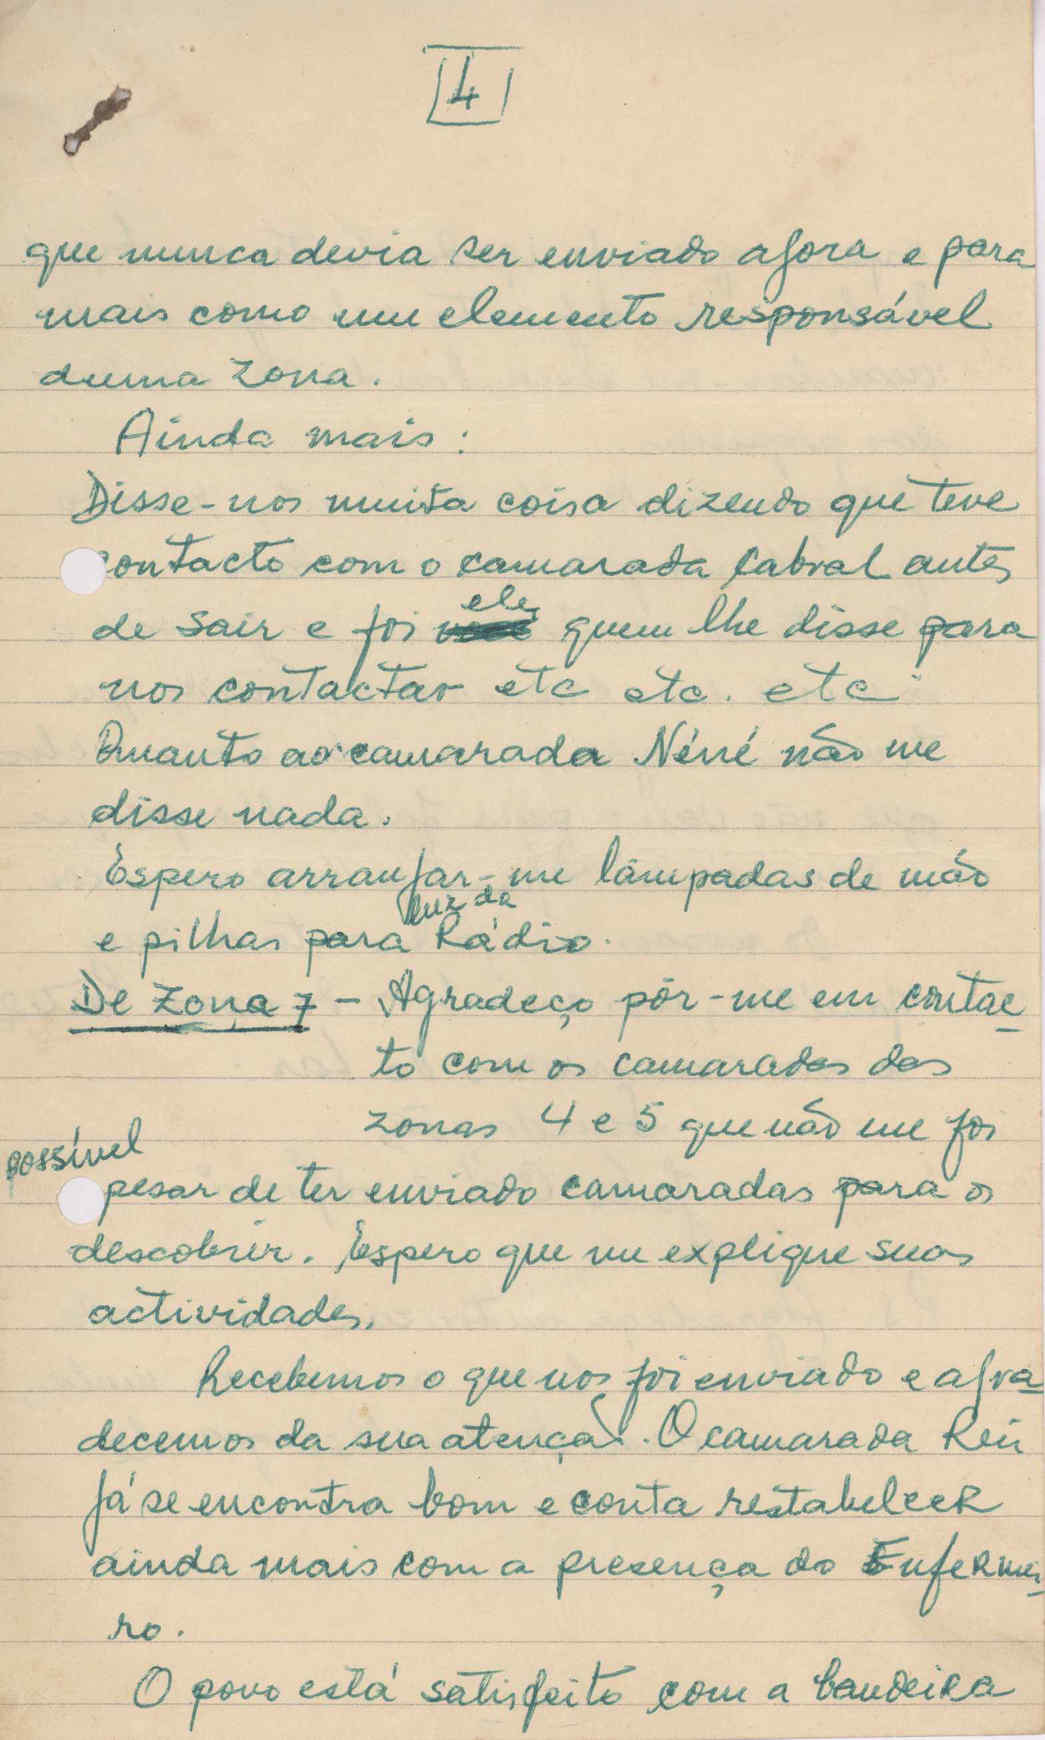 4
que nunca devia ser enviado agora e para
mais como um elemento responsável
duma zona.
Ainda mais:
Disse-nos muita coisa dizendo que teve
contacto com o camarada Cabral antes
de sair e foi ele quem lhe disse para
nos contactar etc etc. etc.
Quanto ao camarada Néné não me
disse nada.
Espero arranjar-me lâmpadas de mão
e pilhas para luz da Rádio.
De Zona 7 – Agradeço pôr-me em contac-
to com os camaradas das
zonas 4 e 5 que não me foi
possível
pesar de ter enviado camaradas para os
descobrir. Espero que me explique suas
actividades.
Recebemos o que nos foi enviado e agra-
decemos da sua atenção. O camarada
já se encontra bom e conta restabelecer
ainda mais com a presença do Enfermei-
ro.
O povo está satisfeito com a bandeira